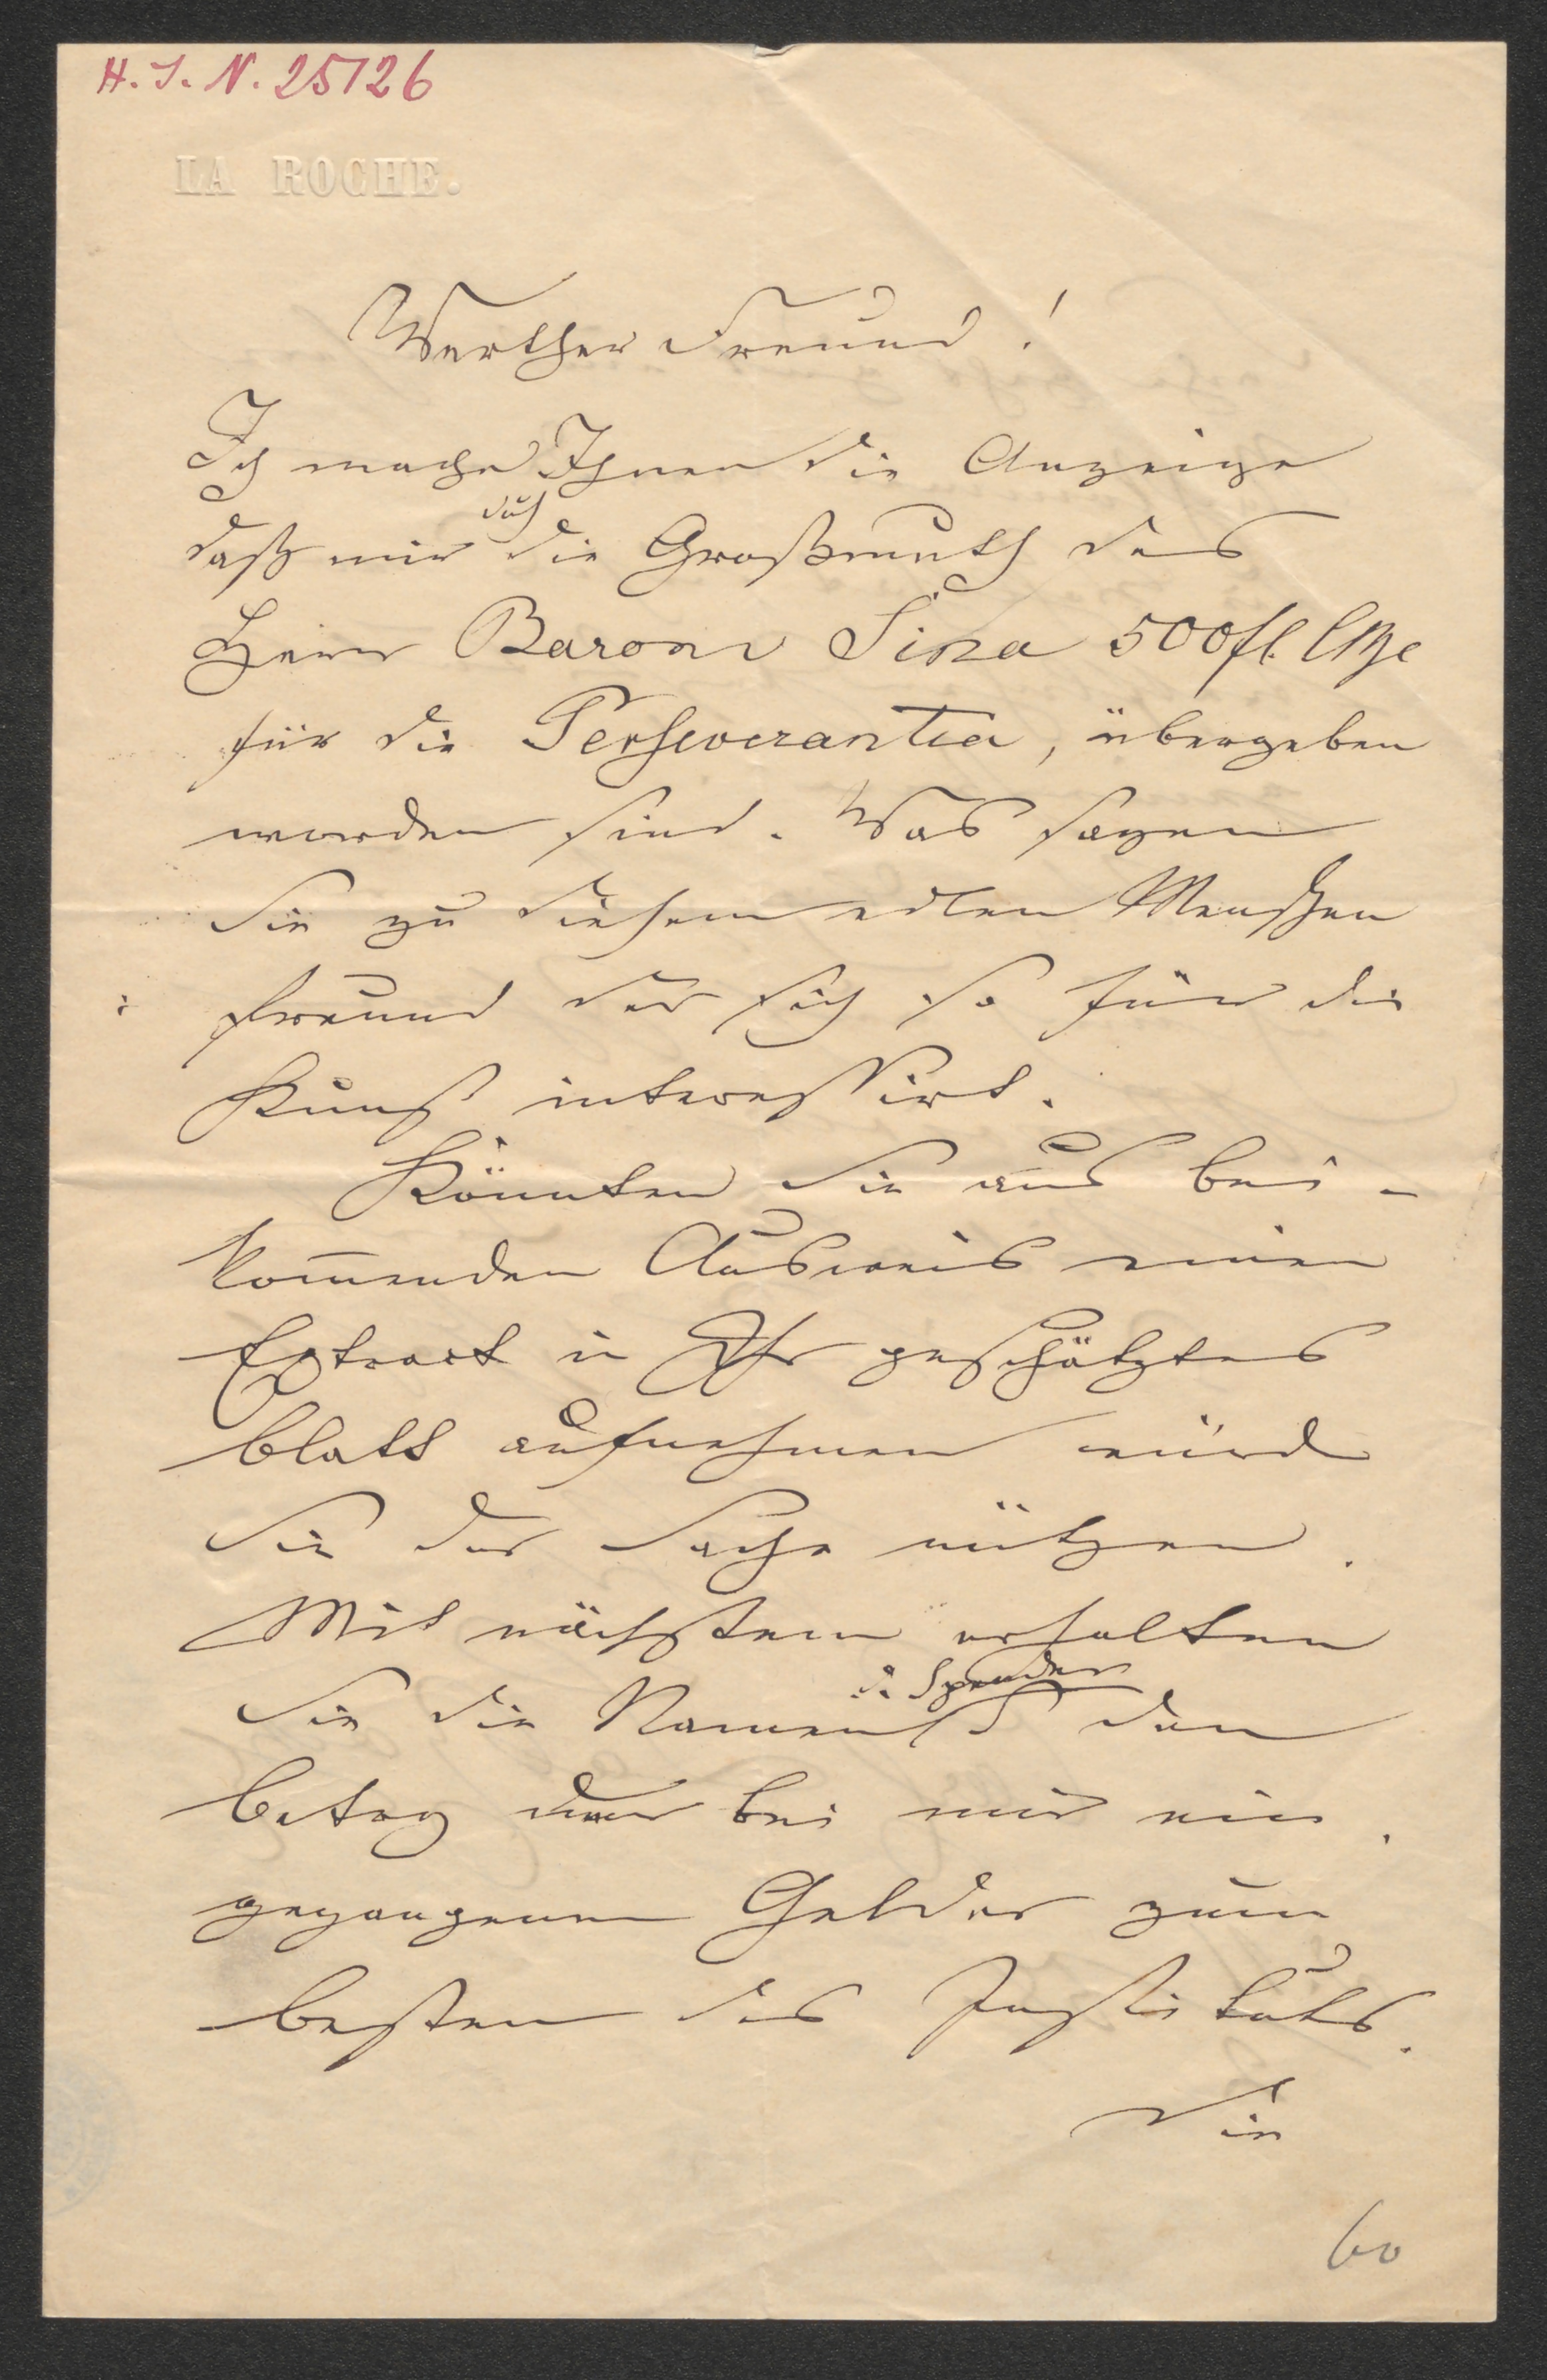 H. I. N. 25126
LA ROCHE.
Werther Freund!
Ich mache Ihnen die Anzeige
daß mir durch die Großmuth des
Herrn Baron Sina 500 fl.
für die Perseverantia, übergeben
worden sind. Was sagen
Sie zu diesem edlen Menschen
freund der sich so für die
Kunst interessirt.
Könnten Sie aus bei-
kommenden Ausweis einen
Extract in Ihr geschätztes
blatt aufnehmen würd
Sie der Sache nützen.
Mit nächstem erhalten
Sie die Namen d. Spender den
betrag der bei mir ein
gegangenen Gelder zum
besten des Instituts.
Die
60